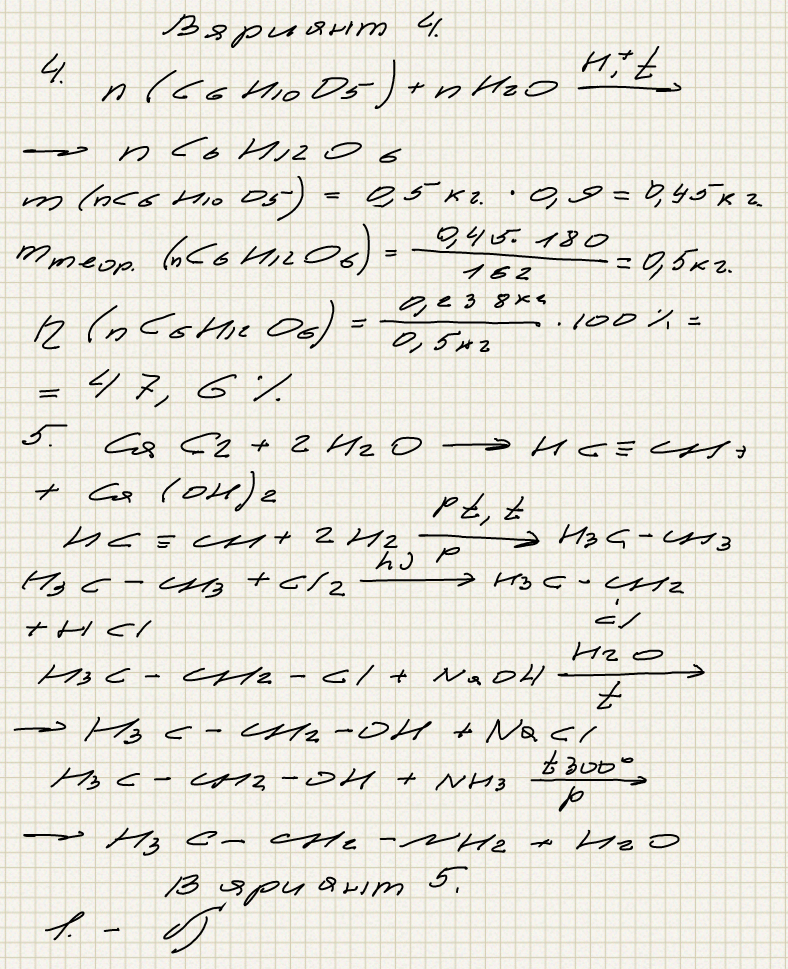 Вариант 4.
4. n (C6 H10 O5) + n H2O H,+ t →
→ n C6 H12 O6
m (nC6 H10 O5) = 0,5 кг. · 0,9 = 0,45 кг.
m теор. (nC6 H12 O6) = 0,45 · 180 / 162 = 0,5 кг.
η (nC6H12 O6) = 0,238 кг / 0,5 кг · 100 % =
= 47, 6 %
5. Ca C2 + 2 H2O → HC ≡ CH +
+ Ca (OH)2
HC ≡ CH + 2 H2 pt, t / p → H3C - CH3
H3 C - CH3 + Cl2 hν → H3 C - CH2
Cl
+ H Cl
H3 C - CH2 - Cl + NaOH H2O / t →
→ H3 C - CH2 - OH + NaCl
H3 C - CH2 - OH + NH3 t 300° / p →
→ H3 C - CH2 - NH2 + H2O
Вариант 5.
1. - б)